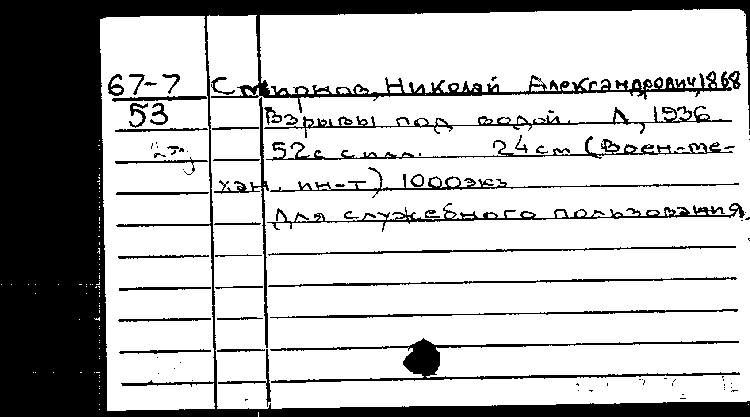 67-7 Смирнов, Николай Александрович, 1868
53 Взрывы под водой. Л, 1936
2эк 52с с илл. 24см (Воен-ме-
хан. ин-т) 1000экз
Для служебного пользования.